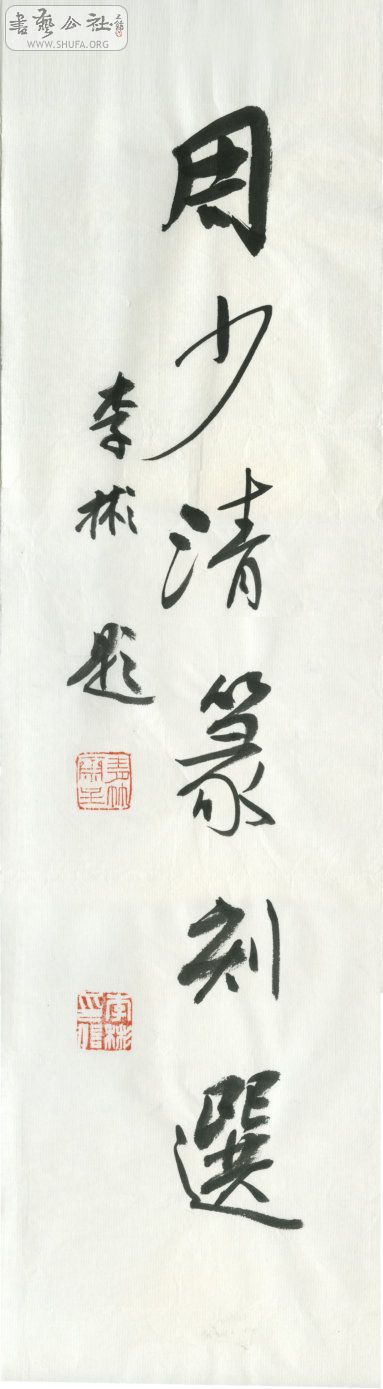 書藝公社
WWW.SHUFA.ORG
周少清篆刻選
李彬題
李彬之信